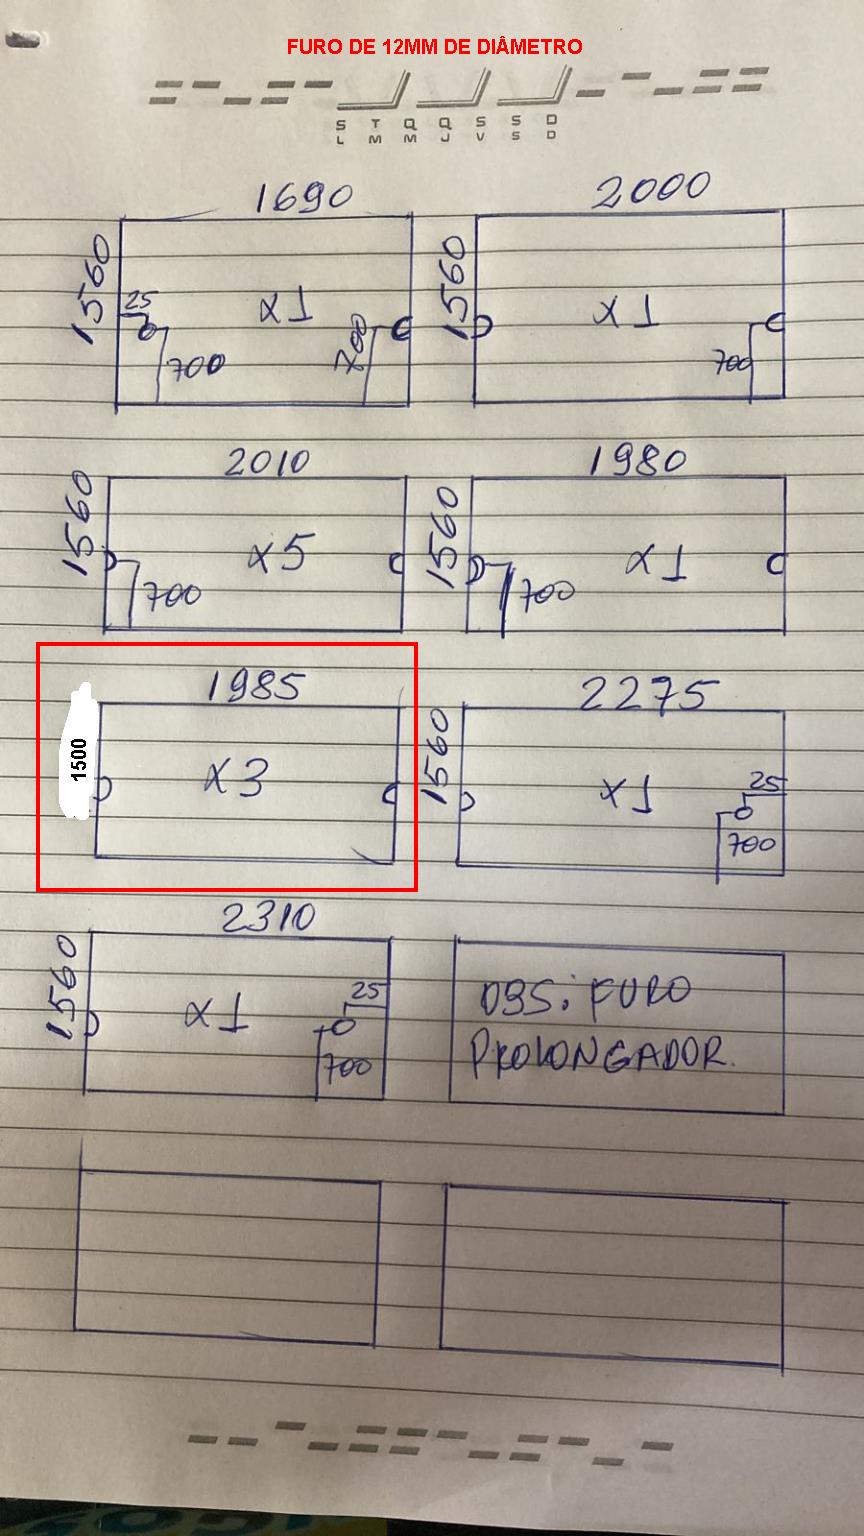 FURO DE 12MM DE DIÂMETRO
S T Q Q S S D
L M M J V S D
1690
1560
25
x1
700
700
2000
1560
x1
700
2010
1560
x5
700
1980
1560
x1
700
1985
1500
x3
2275
1560
x1
25
700
2310
1560
x1
25
700
OBS: FURO
PROLONGADOR.